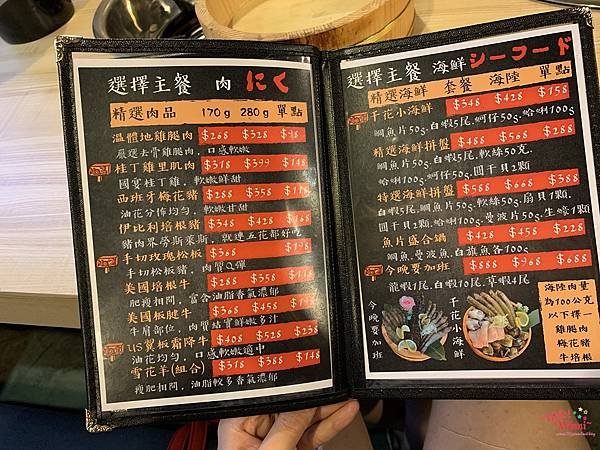 選擇主餐 肉 にく
精選肉品 170g 280g 單點
溫體地雞腿肉 $268 $328 $98
嚴選去骨雞腿肉，口感軟嫩
桂丁雞里肌肉 $318 $399 $148
國宴桂丁雞，軟嫩鮮甜
西班牙梅花豬 $288 $358
油花分佈均勻，軟嫩甘甜
伊比利培根豬 $348 $428 $168
豬肉界勞斯萊斯，就連五花都好吃
手切玫瑰松板 $368 $198
手切松板豬，肉質Q彈
美國培根牛 $288 $358
肥瘦相間，富含油脂香氣濃郁
美國板腱牛 $368 $468
牛肩部位，肉質結實鮮嫩多汁
US翼板霜降牛 $408 $528 $238
油花均勻，口感軟嫩適中
雪花羊(組合) $318 $388 $148
瘦肥相間，油脂較多香氣濃郁
選擇主餐 海鮮 シーフード
精選海鮮 套餐 海陸 單點
千花小海鮮 $348 $428 $158
鯛魚片50g.白蝦5尾.蚵仔50g.哈唎100g
精選海鮮拼盤 $488 $588
鯛魚片50g.白蝦5尾.軟絲50克.
哈唎100g.蚵仔50g.圓干貝2顆
特選海鮮拼盤 $588 $668 $388
白蝦5尾.鯛魚50g.軟絲50g.扇貝1顆
圓干貝2顆.哈唎100g.曼波片50g.生蠔1顆
魚片盛合鍋 $428 $458 $228
鯛魚,曼波魚,白旗魚各100g
今晚要加班 $888 $968 $688
龍蝦1尾,白蝦10尾,草蝦4尾
今晚要加班
千花小海鮮
海陸肉量
為100公克
以下擇一
雞腿肉
梅花豬
牛培根